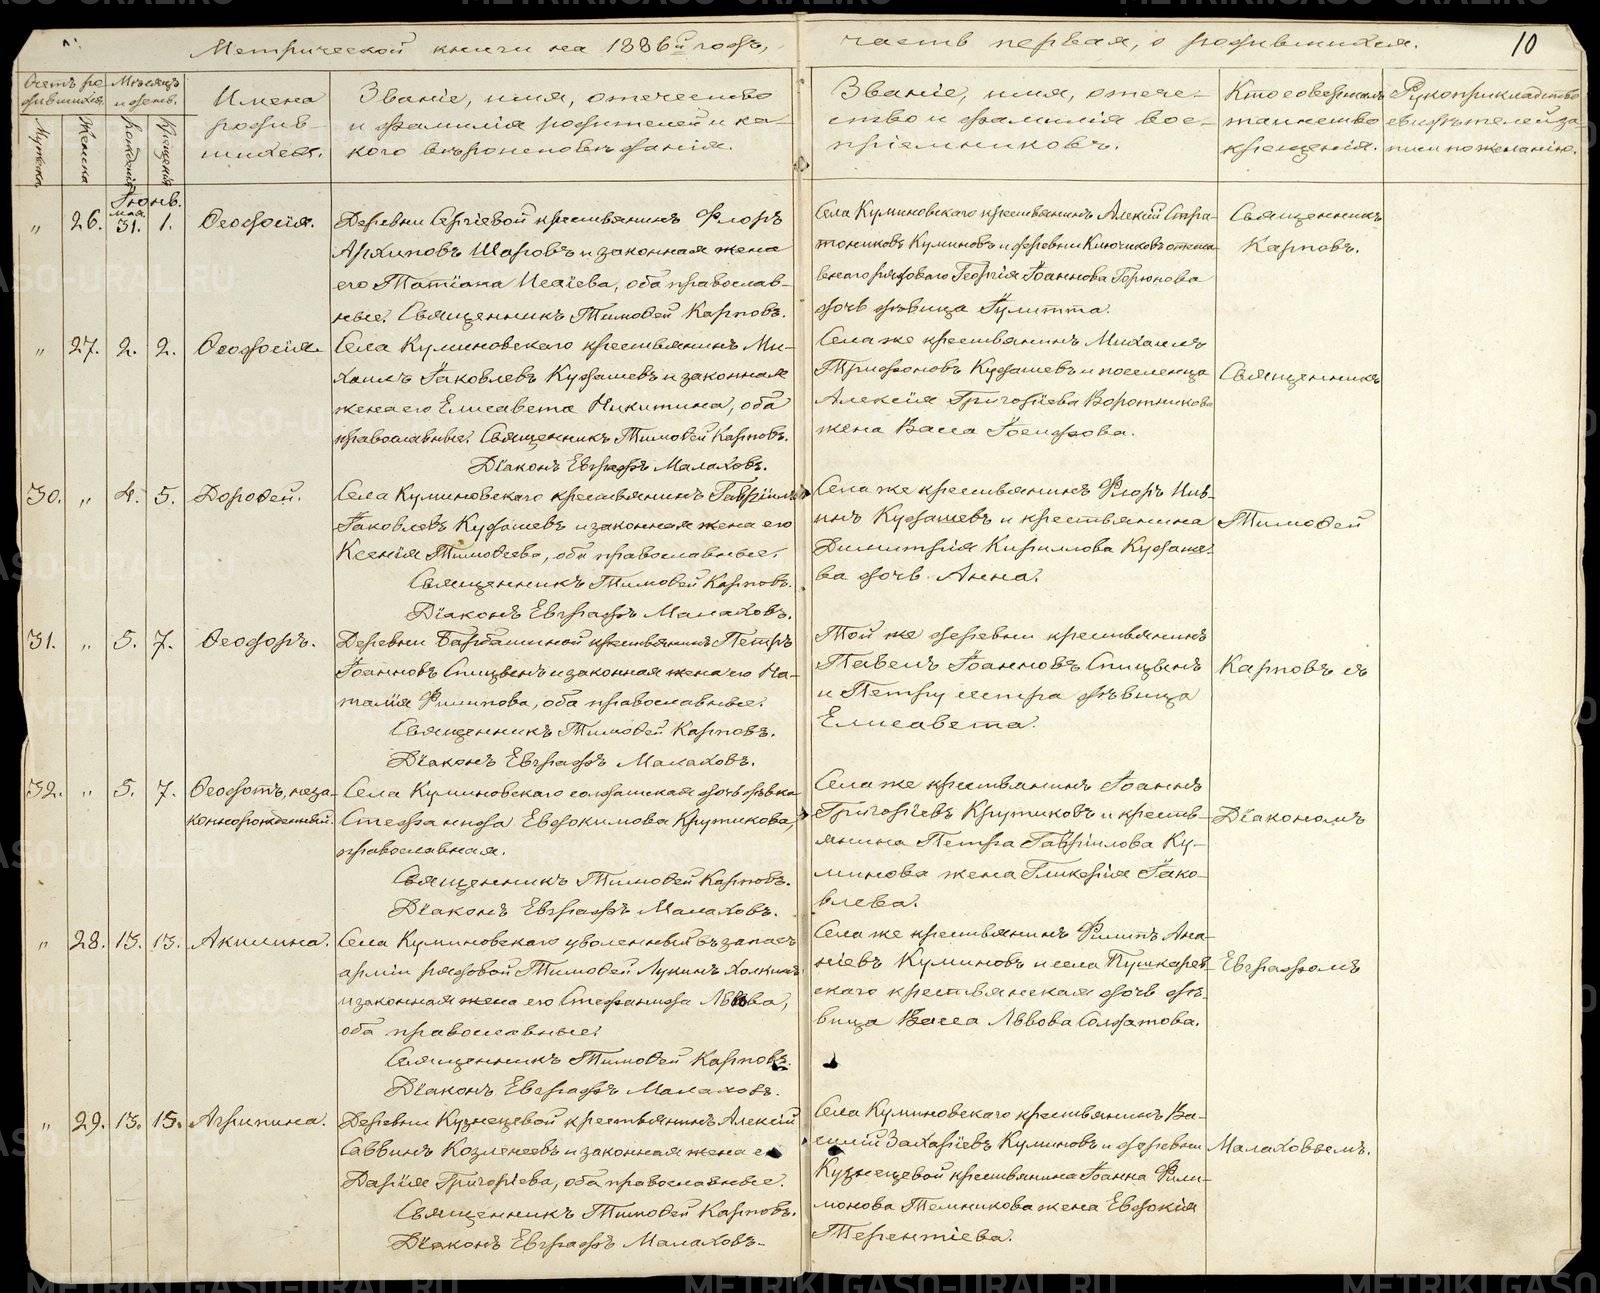 Метрической книги на 1886й годъ,
часть первая, о родившихся.
10
Счетъ ро-
дившихся.
Мѣсяцъ
и день.
Мужеска.
Женска.
рожденія
крещенія
Имена
родив-
шихся.
Званіе, имя, отечество
и фамилія родителей и ка-
кого вѣроисповѣданія.
Званіе, имя, отече-
ство и фамилія вос-
пріемниковъ.
Кто совершалъ
таинство
крещенія.
Рукоприкладство
свидѣтелей за-
писи по желанію.
Іюнь.
мая
„ 26. 31. 1. Ѳеодосія.
Деревни Сергіевой крестьянинъ Флоръ
Архиповъ Шаровъ и законная жена
его Татіана Исаіева, оба православ-
ные. Священникъ Тимоѳей Карповъ.
Села Куминовскаго крестьянинъ Алексій Стра-
тониковъ Куминовъ и деревни Ключиковъ отста-
внаго рядоваго Георгія Іоаннова Горюнова
дочь дѣвица Іулитта.
Священникъ
Карповъ.
„ 27. 2. 2. Ѳеодосія.
Села Куминовскаго крестьянинъ Ми-
хаилъ Іаковлевъ Кудашевъ и законная
жена его Елисавета Никитина, оба
православные. Священникъ Тимоѳей Карповъ.
Діаконъ Евграфъ Малаховъ.
Села же крестьянинъ Михаилъ
Трифоновъ Кудашевъ и поселенца
Алексія Григоріева Воротникова
жена Васса Іосифова.
Священникъ
30. „ 4. 5. Дороѳей.
Села Куминовскаго крестьянинъ Гавріилъ
Іаковлевъ Кудашевъ и законная жена его
Ксенія Тимоѳеева, оба православные.
Священникъ Тимоѳей Карповъ.
Діаконъ Евграфъ Малаховъ.
Села же крестьянинъ Флоръ Иль-
инъ Кудашевъ и крестьянина
Димитрія Кириллова Кудаше-
ва дочь Анна.
Тимоѳей
31. „ 5. 7. Ѳеодоръ.
Деревни Барбашиной крестьянинъ Петръ
Іоанновъ Спицынъ и законная жена его На-
талія Филипова, оба православные.
Священникъ Тимоѳей Карповъ.
Діаконъ Евграфъ Малаховъ.
Той же деревни крестьянинъ
Павелъ Іоанновъ Спицынъ
и Петру сестра дѣвица
Елисавета.
Карповъ съ
32. „ 5. 7. Ѳеодотъ, неза-
коннорожденный.
Села Куминовскаго солдатская дочь дѣвка
Стефанида Евдокимова Крутикова,
православная.
Священникъ Тимоѳей Карповъ.
Діаконъ Евграфъ Малаховъ.
Села же крестьянинъ Іоаннъ
Григоріевъ Крутиковъ и кресть-
янина Петра Гавріилова Ку-
минова жена Гликерія Іако-
влева.
Діакономъ
„ 28. 13. 13. Акилина.
Села Куминовскаго уволенный въ запасъ
арміи рядовой Тимоѳей Лукинъ Холкинъ
и законная жена его Стефанида Львова,
оба православные.
Священникъ Тимоѳей Карповъ.
Діаконъ Евграфъ Малаховъ.
Села же крестьянинъ Филипъ Ана-
ніевъ Куминовъ и села Пушкарев-
скаго крестьянская дочь дѣ-
вица Васса Львова Солдатова.
Евграфомъ
„ 29. 13. 15. Агрипина.
Деревни Кузнецевой крестьянинъ Алексій
Саввинъ Козленевъ и законная жена его
Дарія Григоріева, оба православные.
Священникъ Тимоѳей Карповъ.
Діаконъ Евграфъ Малаховъ.
Села Куминовскаго крестьянинъ Ва-
силій Захаріевъ Куминовъ и деревни
Кузнецевой крестьянина Іоанна Фили-
монова Темникова жена Евдокія
Терентіева.
Малаховымъ.
METRIKI.GASO-URAL.RU